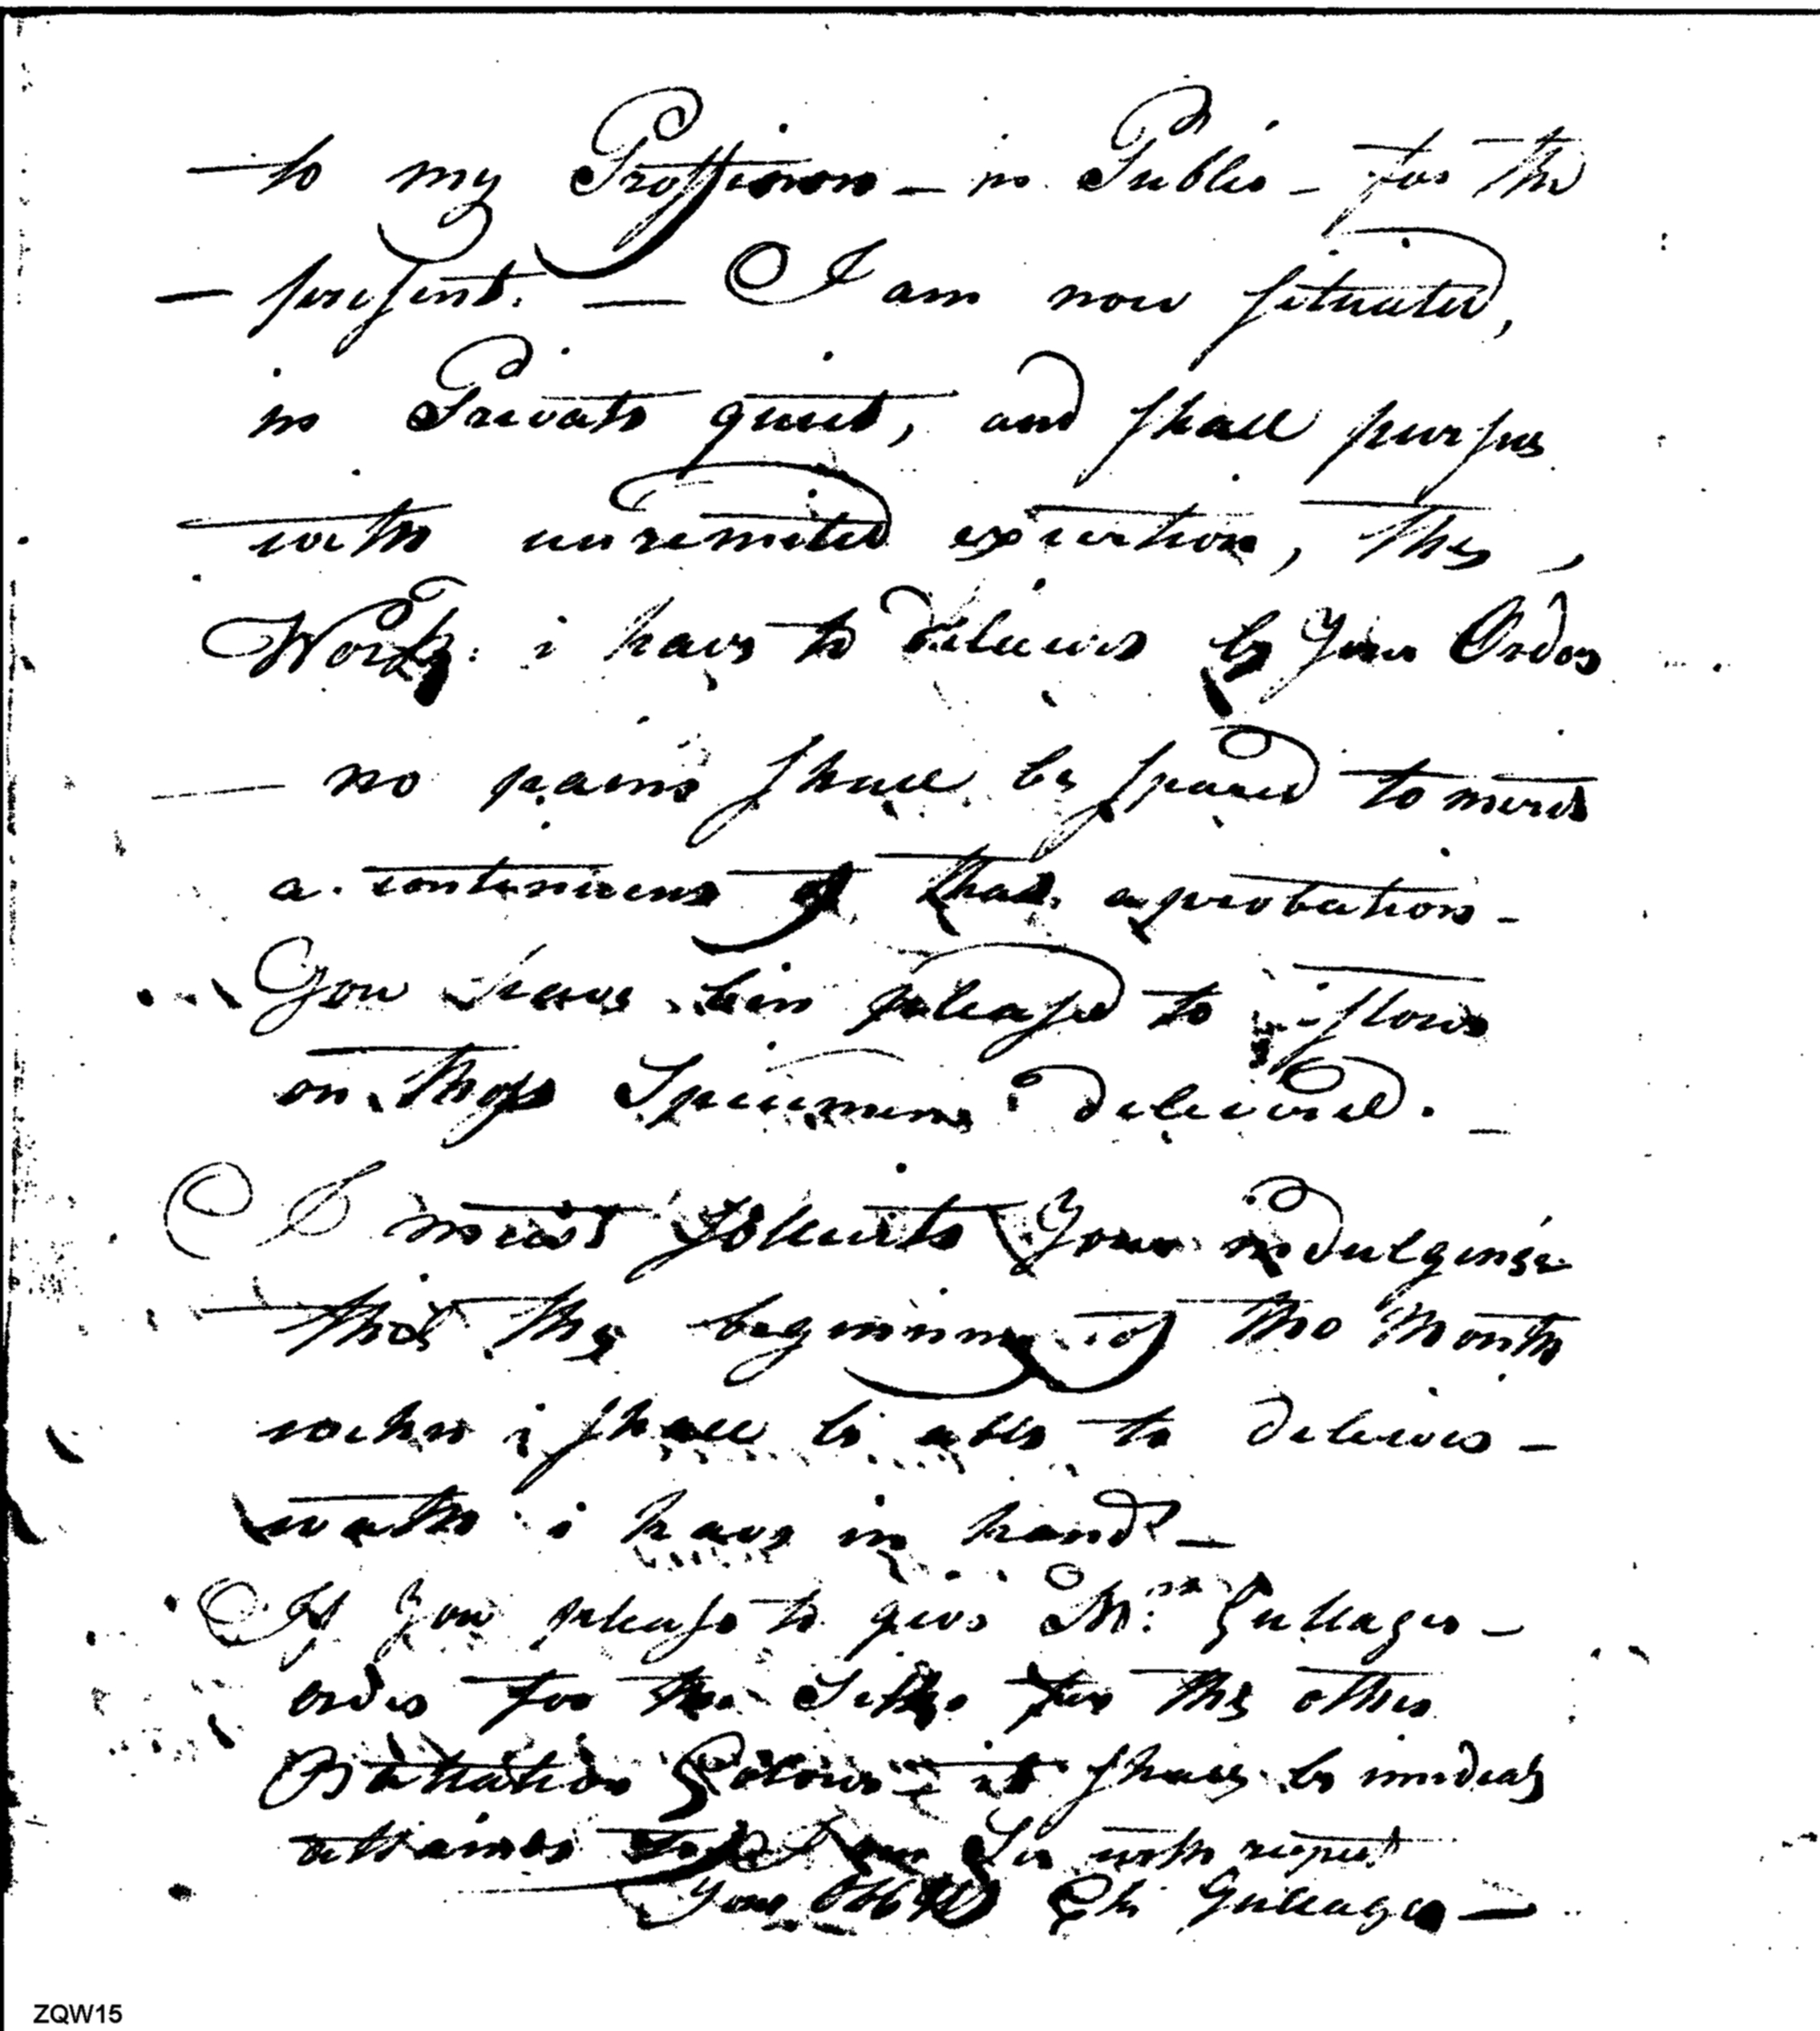 to my Proffesion — in Public — for the
— present. — I am now situated,
in Private quiet, and shall pursue
with unremited exertion, the,
Work: i have to deliver by Your Order
— no pains shall be spared to merit
a continuens of that aprobation —
You have bin pleased to
on those Specimens delivered. —
I must your indulgense
the beginning of the Month
when i shall be able to deliver —
i have in hand —
If You please to give Mrs Gullager —
order for the Silks for the other
Battalion Colours it shall be
attained to I am Sir with respect
Your Chr Gullager —
ZQW15